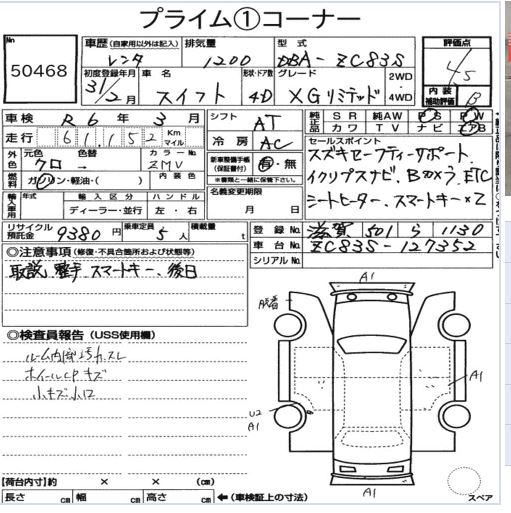 プライム①コーナー
No 50468
車歴 (自家用以外は記入) レンタ
排気量 1200
型式 DBA-ZC83S
評価点 4.5
初度登録年月 31/2月
車名 スイフト
形状・ドア数 4D
グレード XGリミテッド
2WD・4WD
内装補助評価 B
車検 R6年3月
シフト AT
純正品 SR 純AW PS PW
カワ TV ナビ エアB
走行 61,152 Km マイル
冷房 AC
セールスポイント
スズキセーフティーサポート
イクリプスナビ、Bカメラ、ETC
シートヒーター、スマートキー×2
外色 元色 クロ 色替 →
カラーNo. ZMV
内装色
新車整備手帳(保証書付) 有・無
※書類と一緒に保管下さい。
燃料 ガソリン・軽油・( )
名義変更期限 月 日
輸入車用 年式 輸入区分 ディーラー・並行 ハンドル 左・右
リサイクル預託金 9380円
乗車定員 5人
積載量 t
登録No. 滋賀 501 ら 1130
車台No. ZC83S-127352
シリアルNo.
◎注意事項 (修復・不具合箇所および状態等)
取説、整手、スマートキー、後日
◎検査員報告 (USS使用欄)
ルーム内部汚れ、スレ
ホイールCPキズ
小キズ小凹
A1
A1
U2
A1
A1
【荷台内寸】約 × × (cm)
長さ cm 幅 cm 高さ cm ←(車検証上の寸法)
スペア